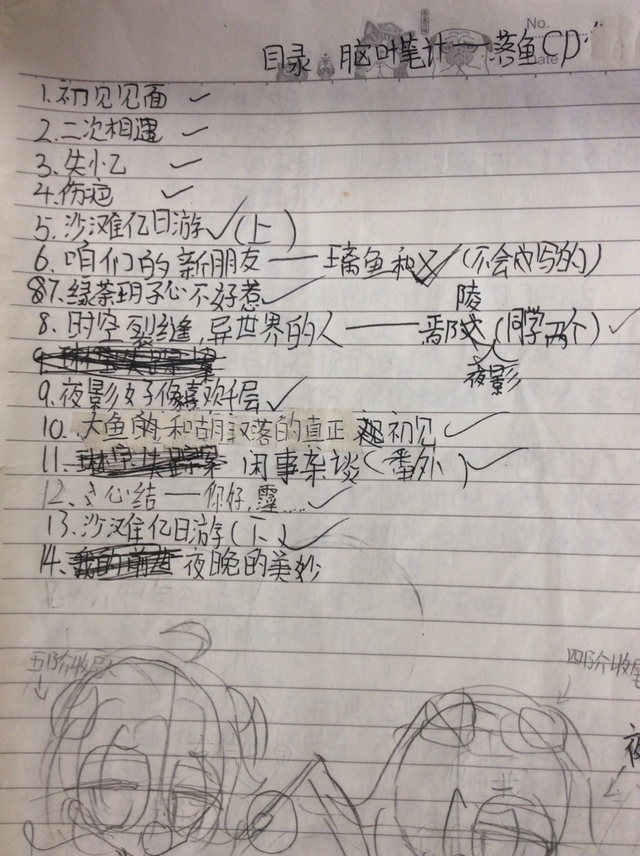 No.
Date
目录 脑叶笔计——落鱼CD
1.初见见面 ✓
2.二次相遇 ✓
3.失小乙 ✓
4.伤疤 ✓
5.沙滩亿日游✓(上)
6.咱们的新朋友——鱼和(不会内写的)
7.绿茶玥子心不好惹✓
陵
8.时空裂缝,异世界的人——(同学两个)✓
夜影
9.夜影女子像喜欢千层✓
10.大鱼 和胡汉落的直正 初见✓
11. 闲事杂谈(番外)✓
12.心结——你好,霪.....✓
13.沙滩亿日游(下)✓
14. 夜晚的美妙
五阶收尾
四阶收尾
夜